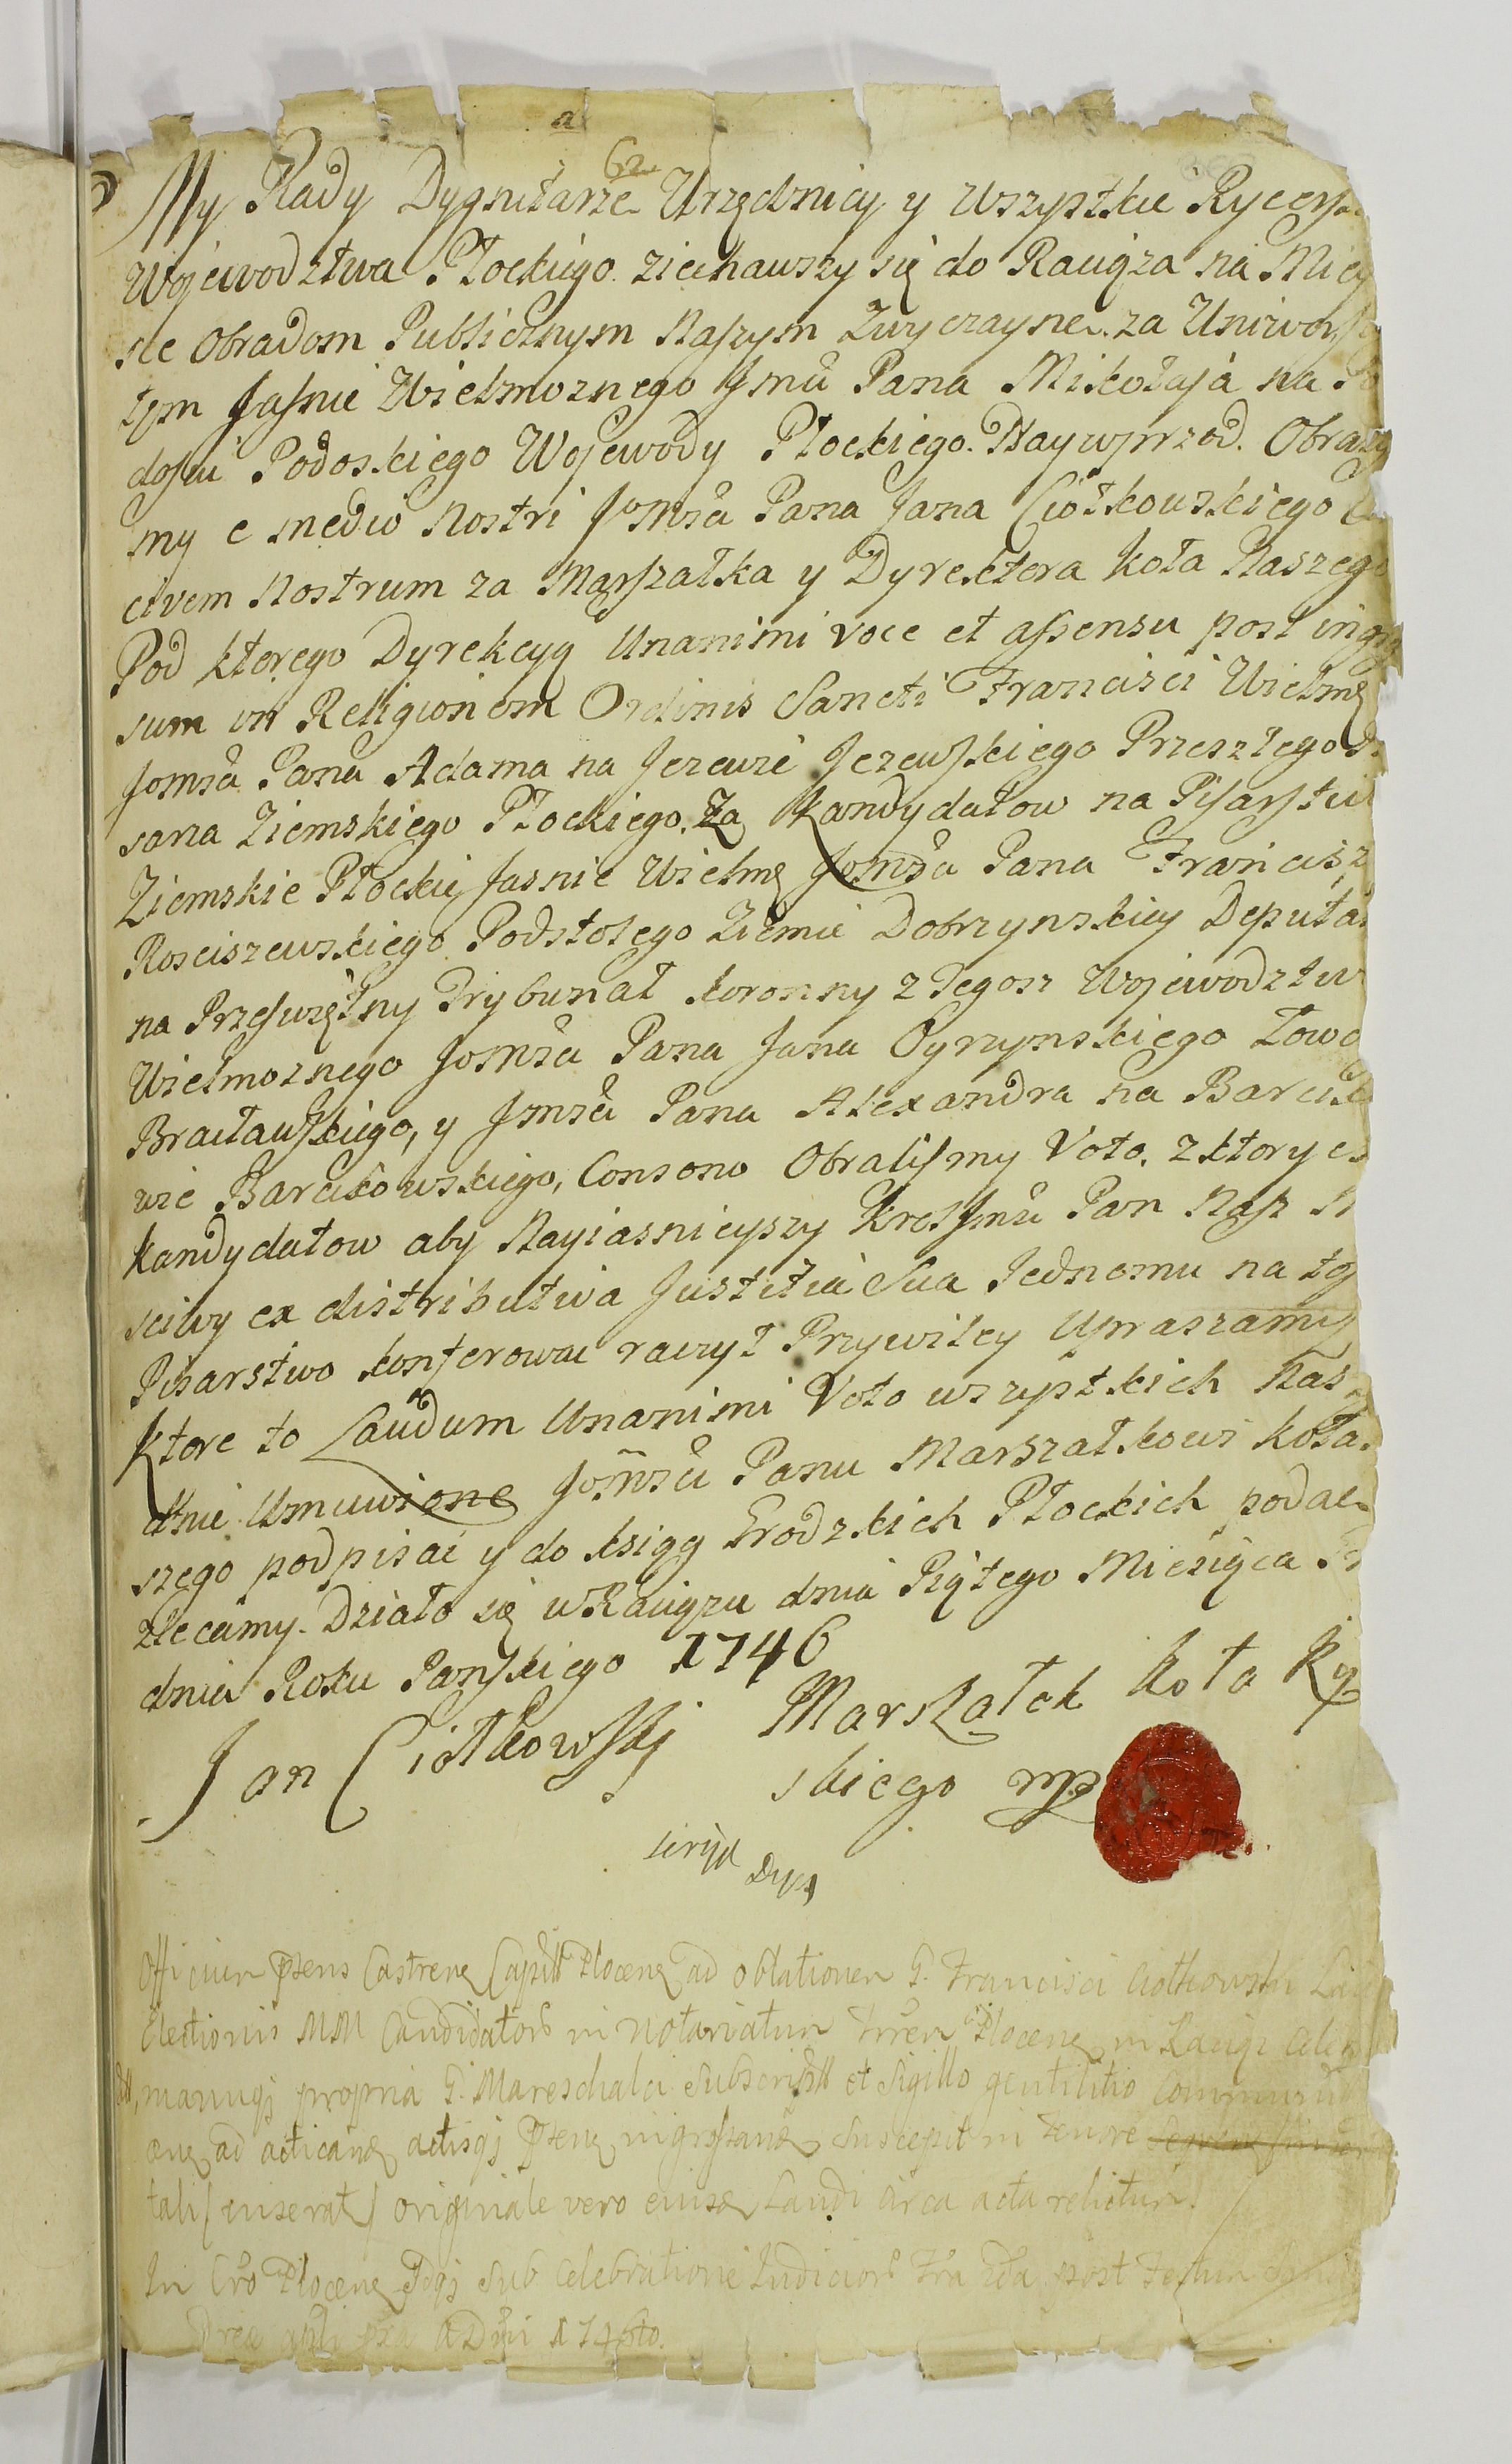 a
62
My Rady Dygnitarze Urzędnicy y Wszystkie Rycers
Wojewodztwa Płockiego ziechawszy się do Raciąża na Miey
sce Obradom Publicznym Naszym Zwyczayne za Uniwers
łem Jaśnie Wielmoznego Jmci Pana Mikołaja na Po
dosiu Podoskiego Wojewody Płockiego. Naywprzod. Obrali
my e medio Nostri Jomści Pana Jana Ciołkowskiego
civem Nostrum za Marszałka y Dyrektora Koła Naszego
Pod ktorego Dyrekcyą Unanimi voce et assensu post ingres
sum in Religionem Ordinis Sancti Francisci Wielmę
Jomści Pana Adama na Jezewie Jezewskiego Przeszłego
sarza Ziemskiego Płockiego. Za Kandydatow na Pisarstwo
Ziemskie Płockie Jasnie Wielmę Jomści Pana Francisz
Rosciszewskiego Podstolego Ziemie Dobrzynskiey Deputa
na Przeświętny Trybunał Koronny z Tegosz Wojewodztw
Wielmoznego Jomści Pana Jana Oyrzynskiego Łowc
Bracławskiego, y Jmści Pana Alexandra na Barciko
wie Barcikowskiego, Consono Obralismy Voto. z ktorych
Kandydatow aby Nayiasnieyszy Krol Jmci Pan Nasz M
sciwy ex distributiva Justitia Sua Jednemu na to
Pisarstwo konferowac raczył Przywiley Upraszamy
Ktore to Laudum Unanimi Voto wszystkich Nas
dnie Umuwione Jomści Panu Marszałkowi Koła
szego podpisac y do ksiąg Grodzkich Płockich podac
zlecamy. Działo się w Raciązu dnia Piątego Miesiąca
dnia Roku Panskiego 1746
Jan Ciołkowskj Marszałek Koła Ry
skiego mp
Officium Praesens Castrense Capitaneale Plocense ad oblationem G. Francisci Ciołkowski
Electionis MM Candidatorum in Notariatum Terren Plocens in Raciąz
manuq propria G. Mareschalci Subscript et Sigillo gentilitio communit
ad acticand actisq Praesen ingrossand Suscepit in tenore
tali (inserat) originale vero eiusd Laudi circa acta relictum.
In Cro Plocens sub celebratione Iudicior post Festum
1746to.